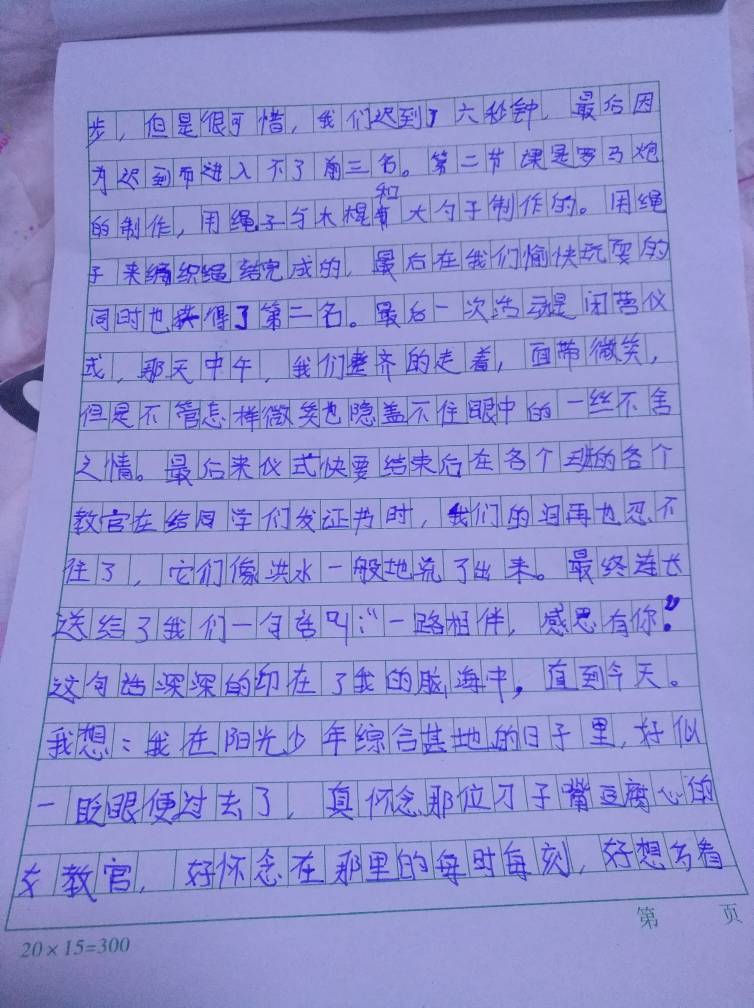 步，但是很可惜，我们迟到了六秒钟，最后因
为迟到而进入不了前三名。第二节课是罗马炮
的制作，用绳子与木棍和大勺子制作的。用绳
子来编织绳结完成的，最后在我们愉快玩耍的
同时也获得了第二名。最后一次活动是闭营仪
式，那天中午，我们整齐的走着，面带微笑，
但是不管怎样微笑也隐盖不住眼中的一丝不舍
之情。最后来仪式快要结束后在各个班的各个
教官在给同学们发证书时，我们的泪再也忍不
住了，它们像洪水一般地流了出来。最终连长
送给了我们一句话叫："一路相伴，感恩有你"
这句话深深的印在了我的脑海中，直到今天。
我想：我在阳光少年综合基地的日子里，好似
一眨眼便过去了，真怀念那位刀子嘴豆腐心的
女教官，好怀念在那里的每时每刻，好想看
第 页
20×15=300